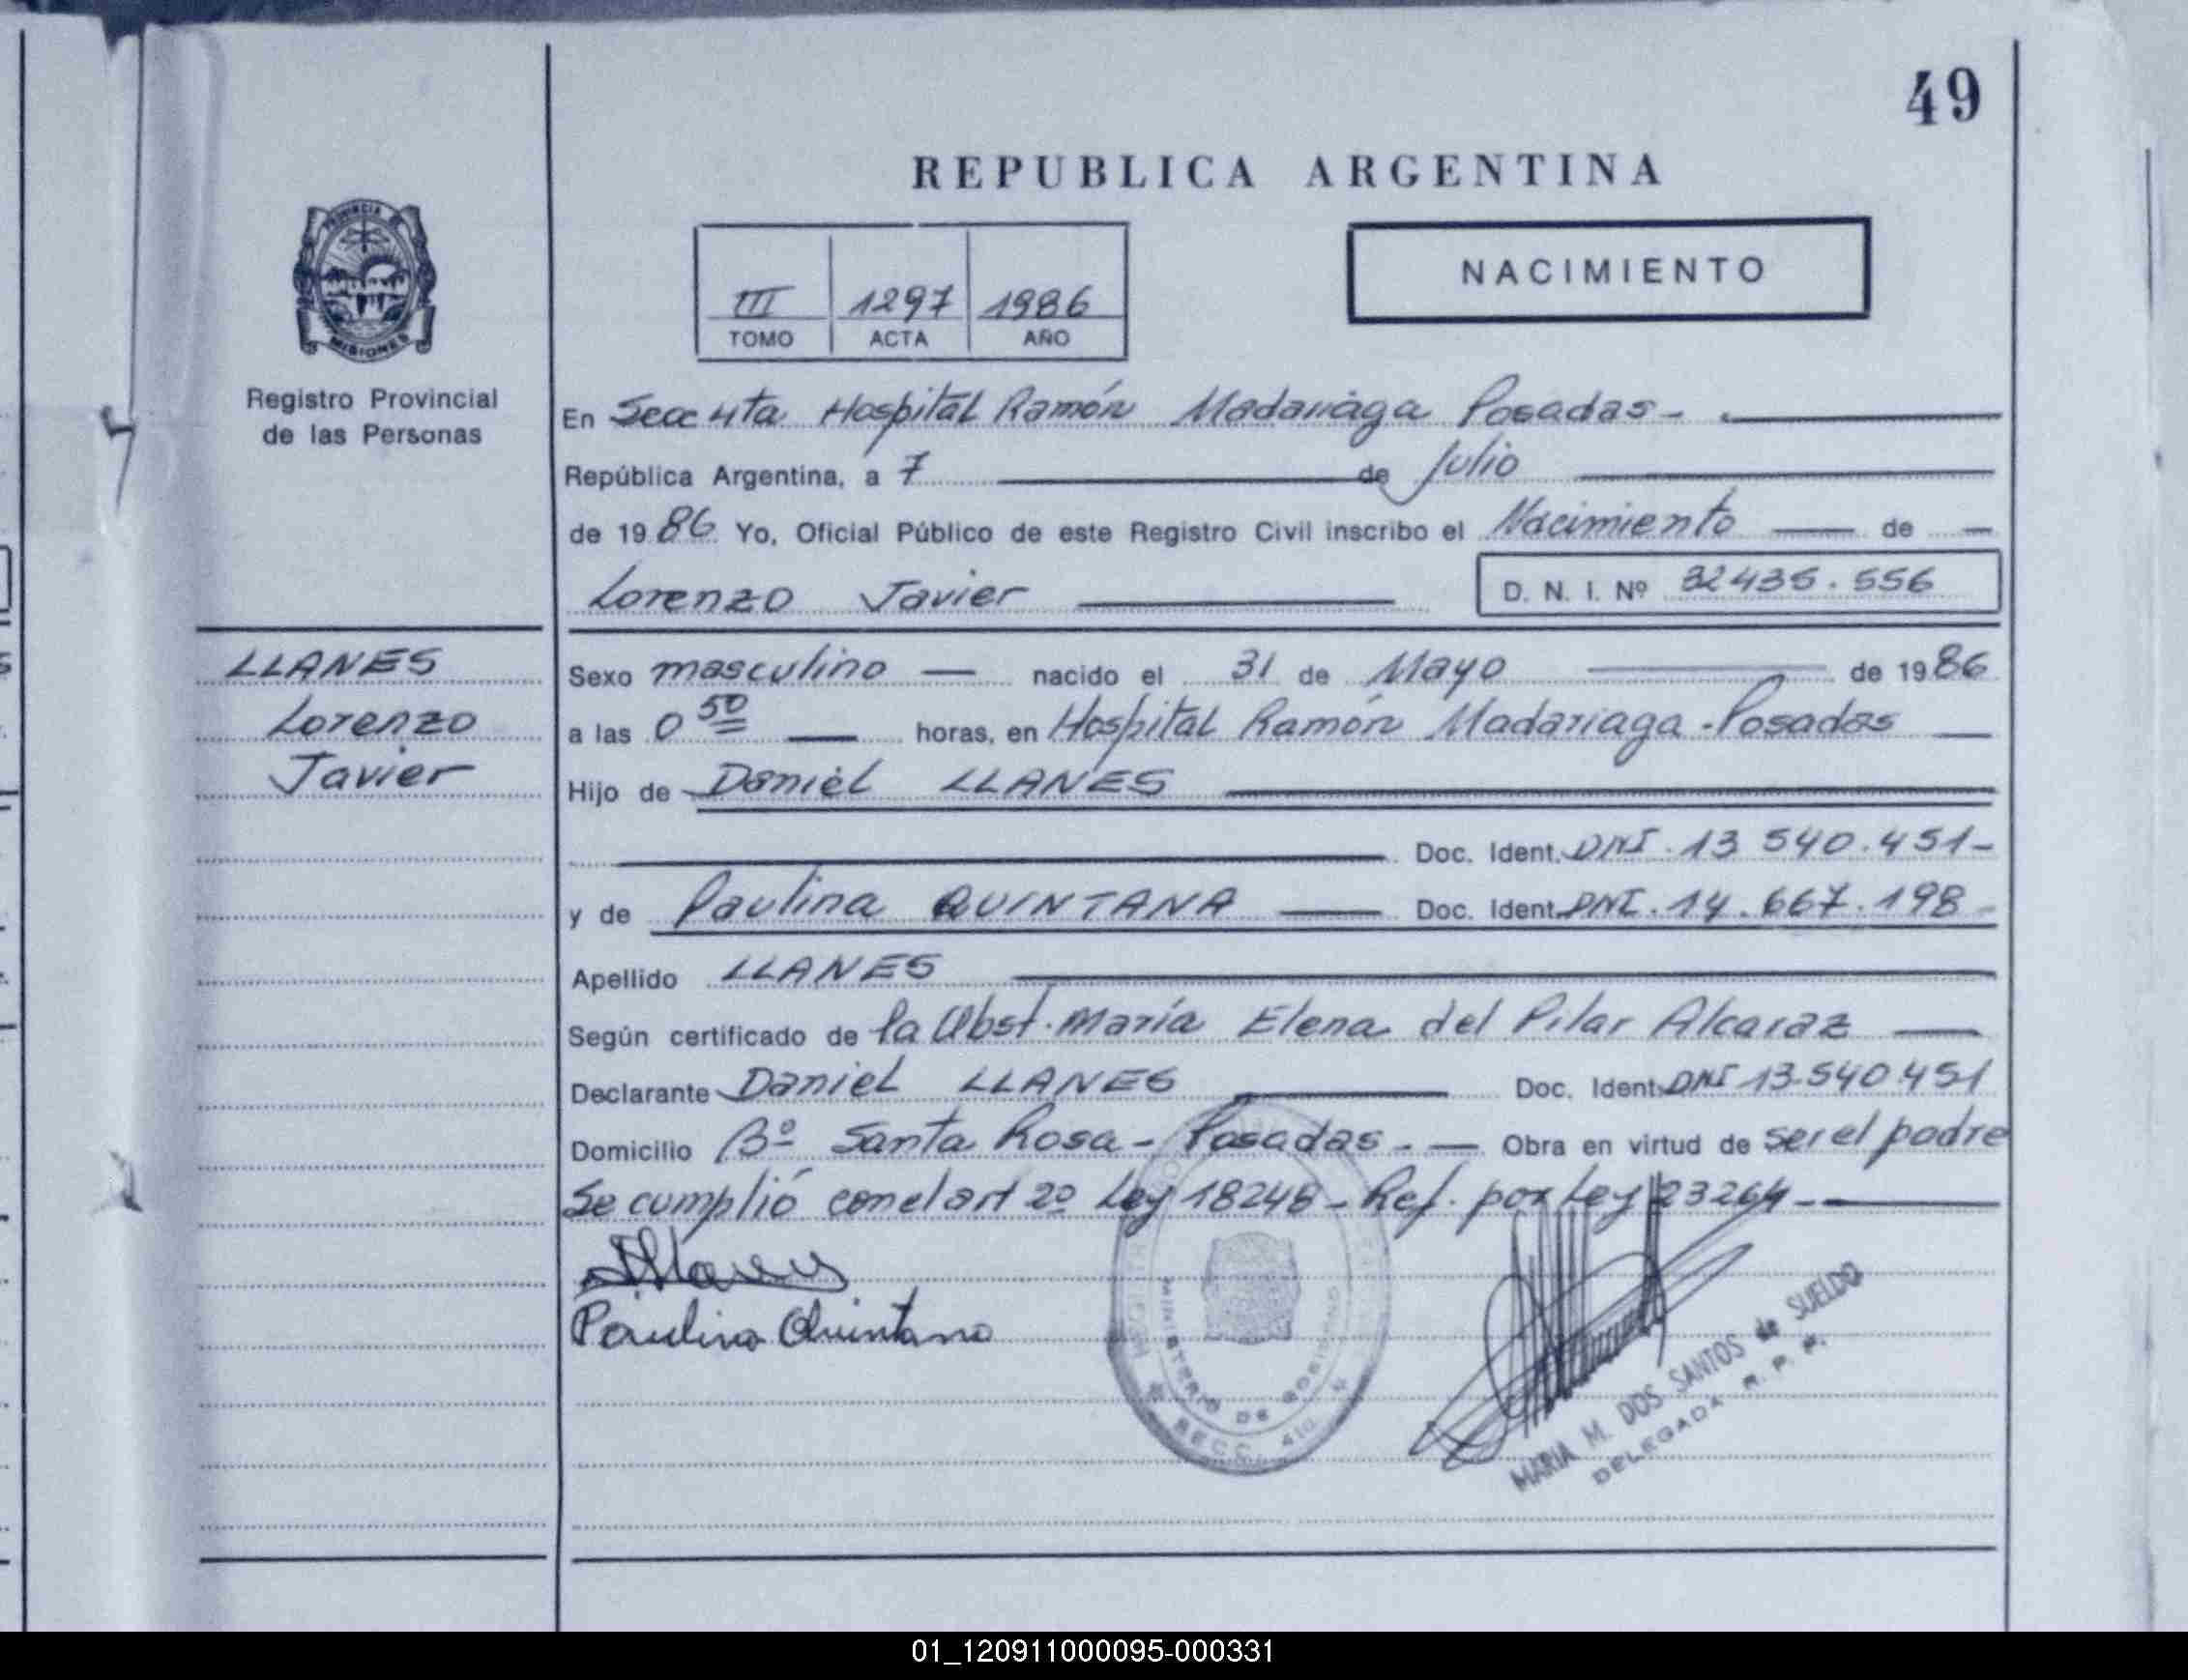 49
REPUBLICA ARGENTINA
PROVINCIA DE
MISIONES
Registro Provincial
de las Personas
III 1297 1986
TOMO ACTA AÑO
NACIMIENTO
En Secc 4ta Hospital Ramón Madariaga Posadas-
República Argentina, a 7 de Julio
de 1986 Yo, Oficial Público de este Registro Civil inscribo el Nacimiento de
Lorenzo Javier D. N. I. Nº 32435.556
LLANES
Lorenzo
Javier
Sexo masculino nacido el 31 de Mayo de 1986
a las 0 50 horas, en Hospital Ramón Madariaga - Posadas
Hijo de Daniel LLANES
Doc. Ident. DNI. 13 540.451-
y de Paulina QUINTANA Doc. Ident. DNI. 14.667.198-
Apellido LLANES
Según certificado de la Obst. María Elena del Pilar Alcaraz
Declarante Daniel LLANES Doc. Ident. DNI 13.540.451
Domicilio Bº Santa Rosa - Posadas.- Obra en virtud de ser el padre
Se cumplió con el art 2º Ley 18248 - Ref. por Ley 23264-
Paulina Quintana
MINISTERIO DE GOBIERNO
SECC. 4ta
MARIA M. DOS SANTOS de SUELDO
DELEGADA R. P. P.
01_120911000095-000331